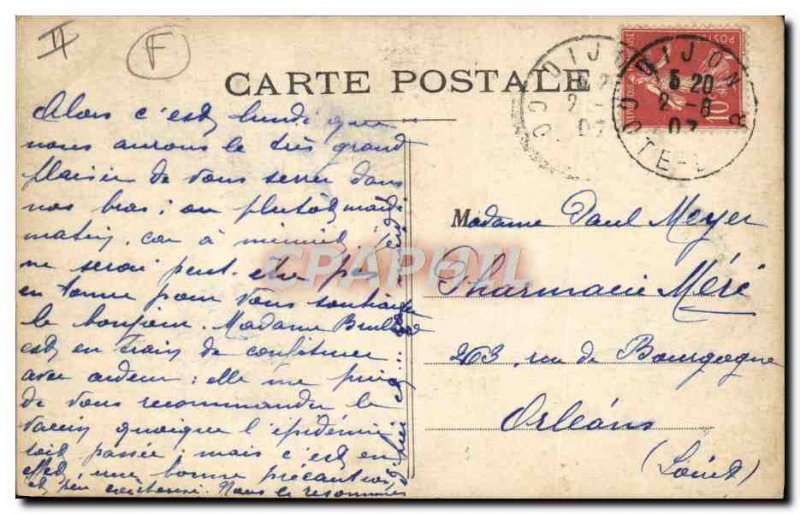 II
F
CARTE POSTALE
DIJON
5 20
2 - 8
07
COTE-D'OR
POSTES
10
Alors c'est lundi que
nous aurons le très grand
plaisir de vous serrer dans
nos bras ; ou plutôt mardi
matin, car à minuit
ne serai peut-être pas
en tenue pour vous souhaiter
le bonjour. Madame
est en train de confiturer
avec ardeur ; elle me prie
de vous recommander le
vaccin quoique l'épidémie
soit passée ; mais c'est en
effet une bonne précaution
et peu coûteuse. Nous
Madame Paul Meyer
Pharmacie Méré
263, rue de Bourgogne
Orléans
(Loiret)
CPAPHIL